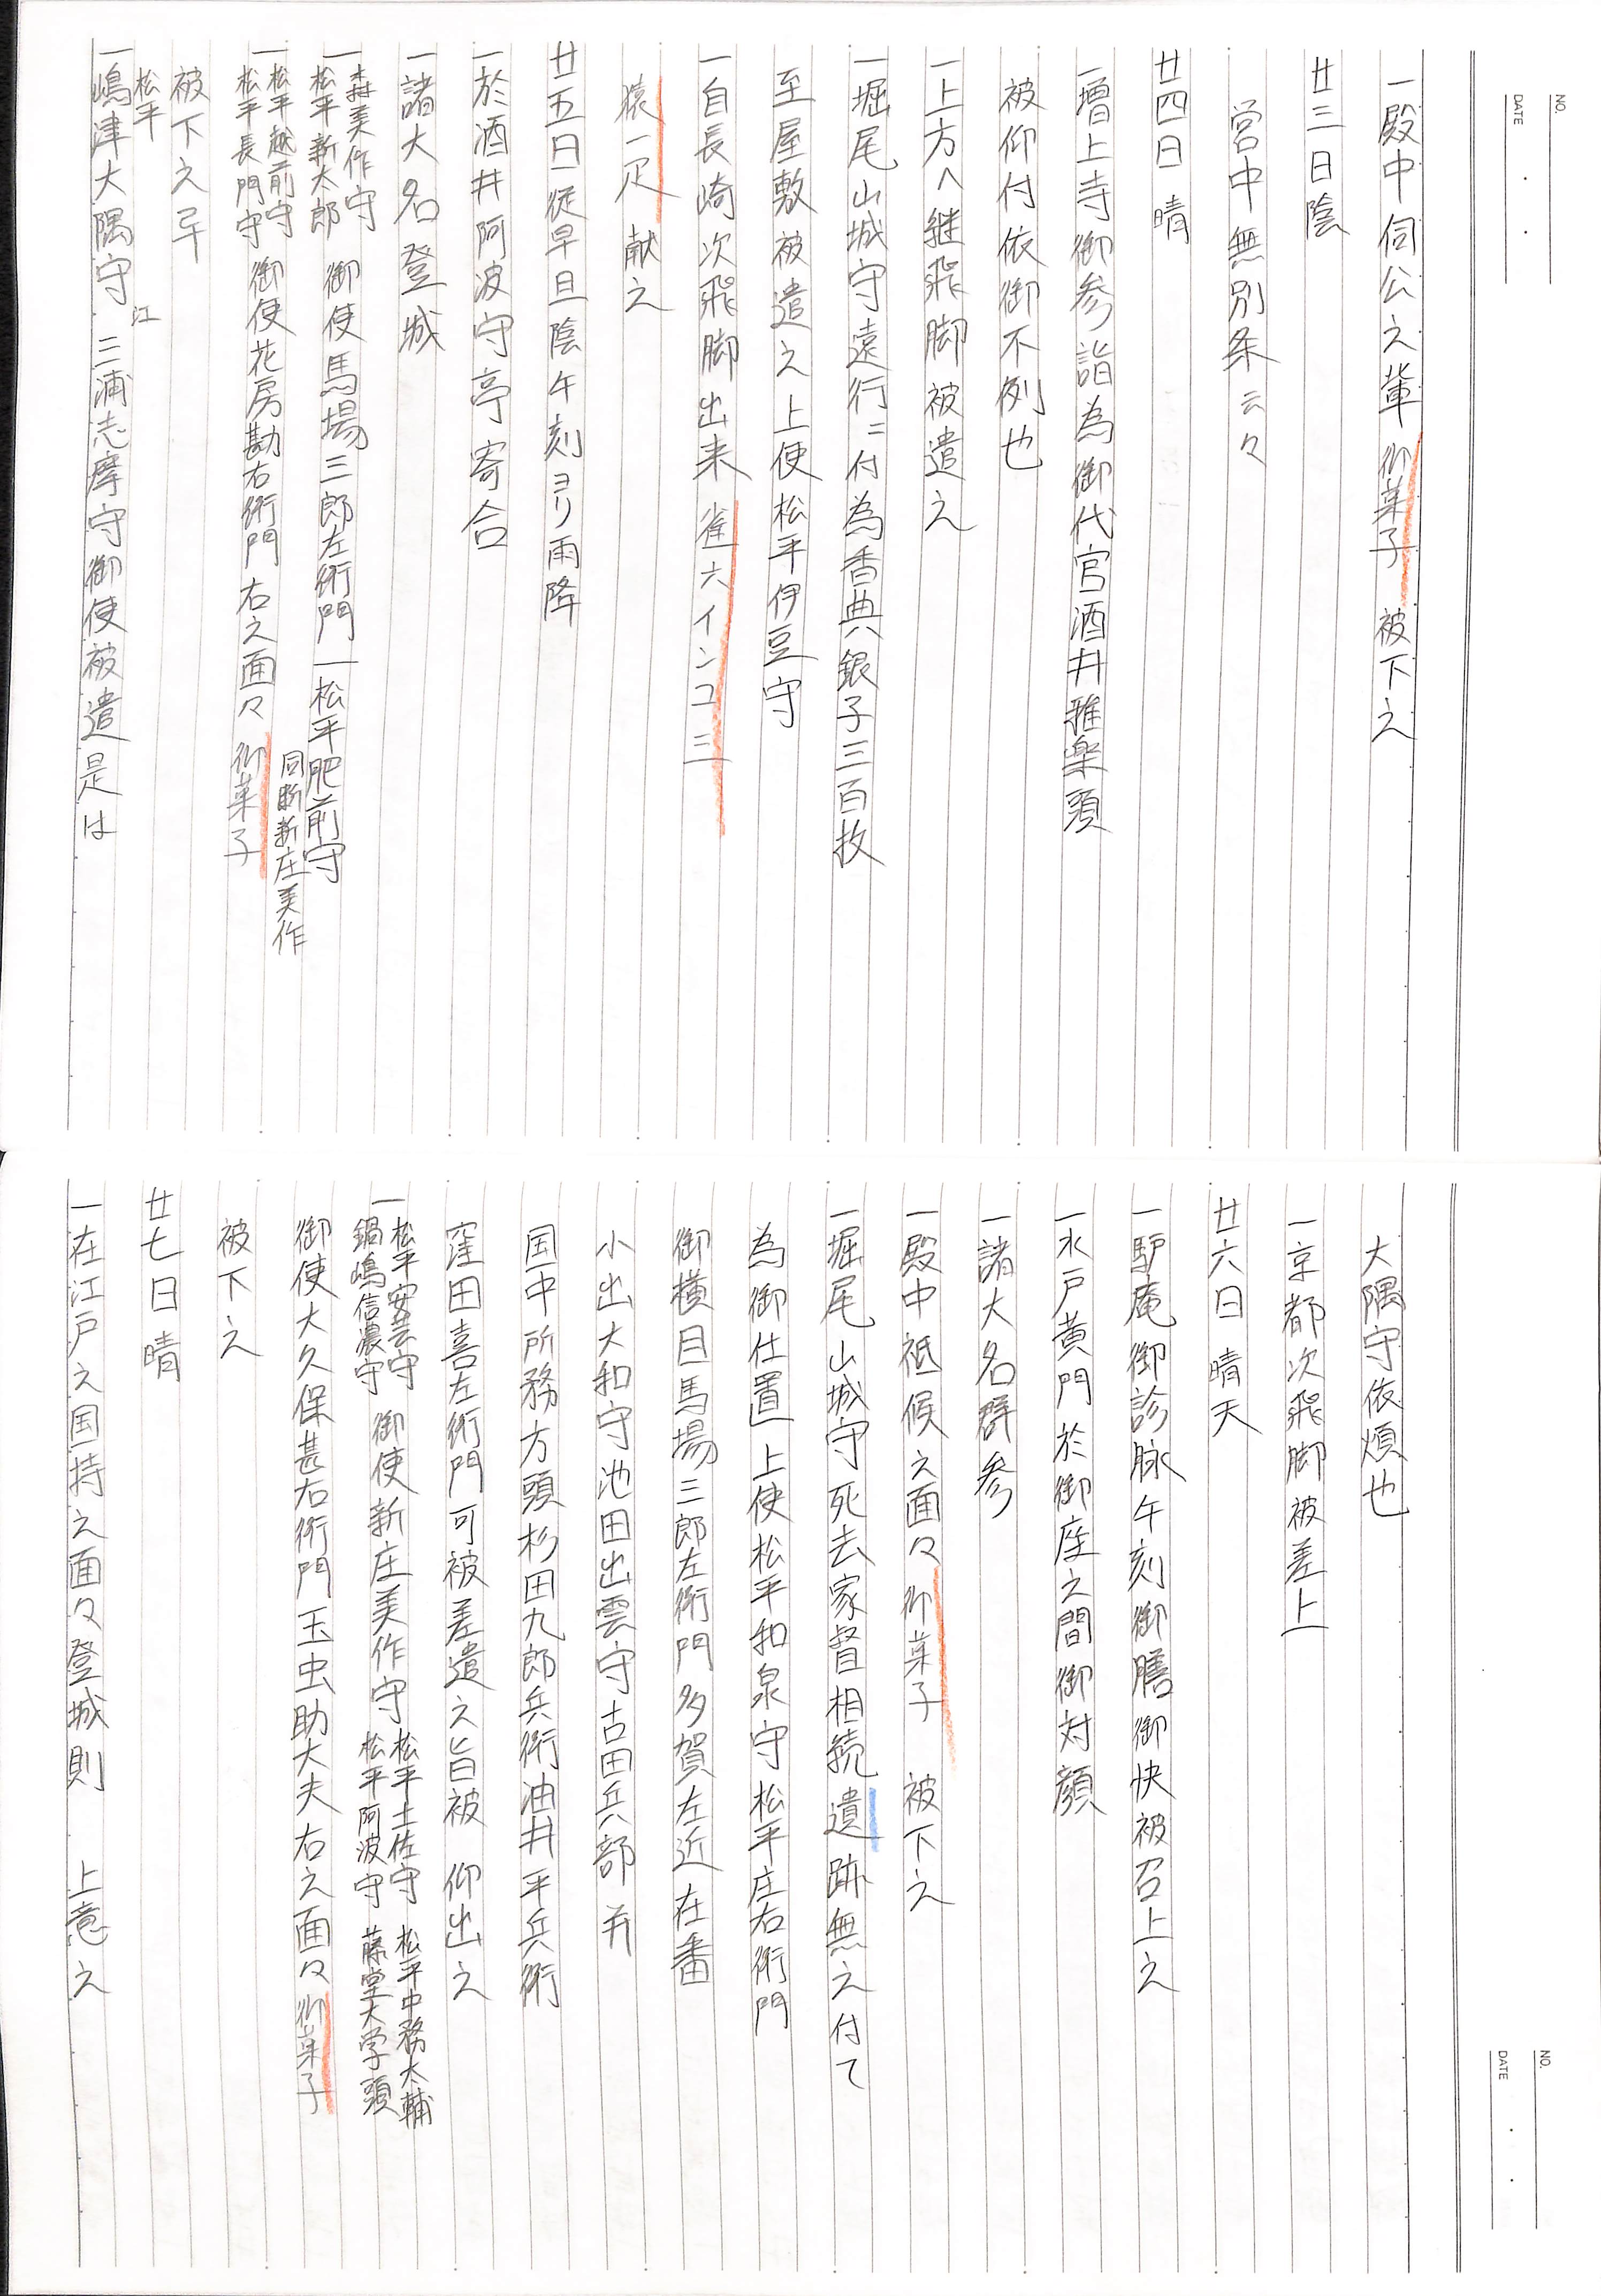 NO.
DATE
一殿中伺公之輩御菓子 被下之
廿三日陰
営中無別条云々
廿四日 晴
一増上寺御参詣為御代官酒井雅楽頭
被仰付依御不例也
一上方へ継飛脚被遣之
一堀尾山城守遠行ニ付為香典銀子三百枚
至屋敷被遣之上使松平伊豆守
一自長崎次飛脚出来 雀六インコ三
猿一疋 献之
廿五日 従早旦陰午刻ヨリ雨降
一於酒井阿波守亭寄合
一諸大名登城
一森美作守 松平新太郎 御使馬場三郎左衛門 一松平肥前守 同断新庄美作
一松平越前守 松平長門守 御使花房勘右衛門 右之面々 御菓子
被下之早
一嶋津大隅守 松平 江 三浦志摩守御使被遣是は
NO.
DATE
大隅守依煩也
一京都次飛脚被差上
廿六日 晴天
一驢庵御診脉午刻御膳御快被召上之
一水戸黄門於御座之間御対顔
一諸大名群参
一殿中祗候之面々 御菓子 被下之
一堀尾山城守死去家督相続遺跡無之付て
為御仕置 上使松平和泉守松平庄右衛門
御横目馬場三郎左衛門多賀左近 在番
小出大和守池田出雲守古田兵部 并
国中所務方頭杉田九郎兵衛油井平兵衛
窪田喜左衛門可被差遣之旨被 仰出之
一松平安芸守 鍋嶋信濃守 御使新庄美作守 松平土佐守 松平阿波守 松平中務太輔 藤堂大学頭
御使大久保甚右衛門玉虫助大夫右之面々御菓子
被下之
廿七日 晴
一在江戸之国持之面々登城則 上意之